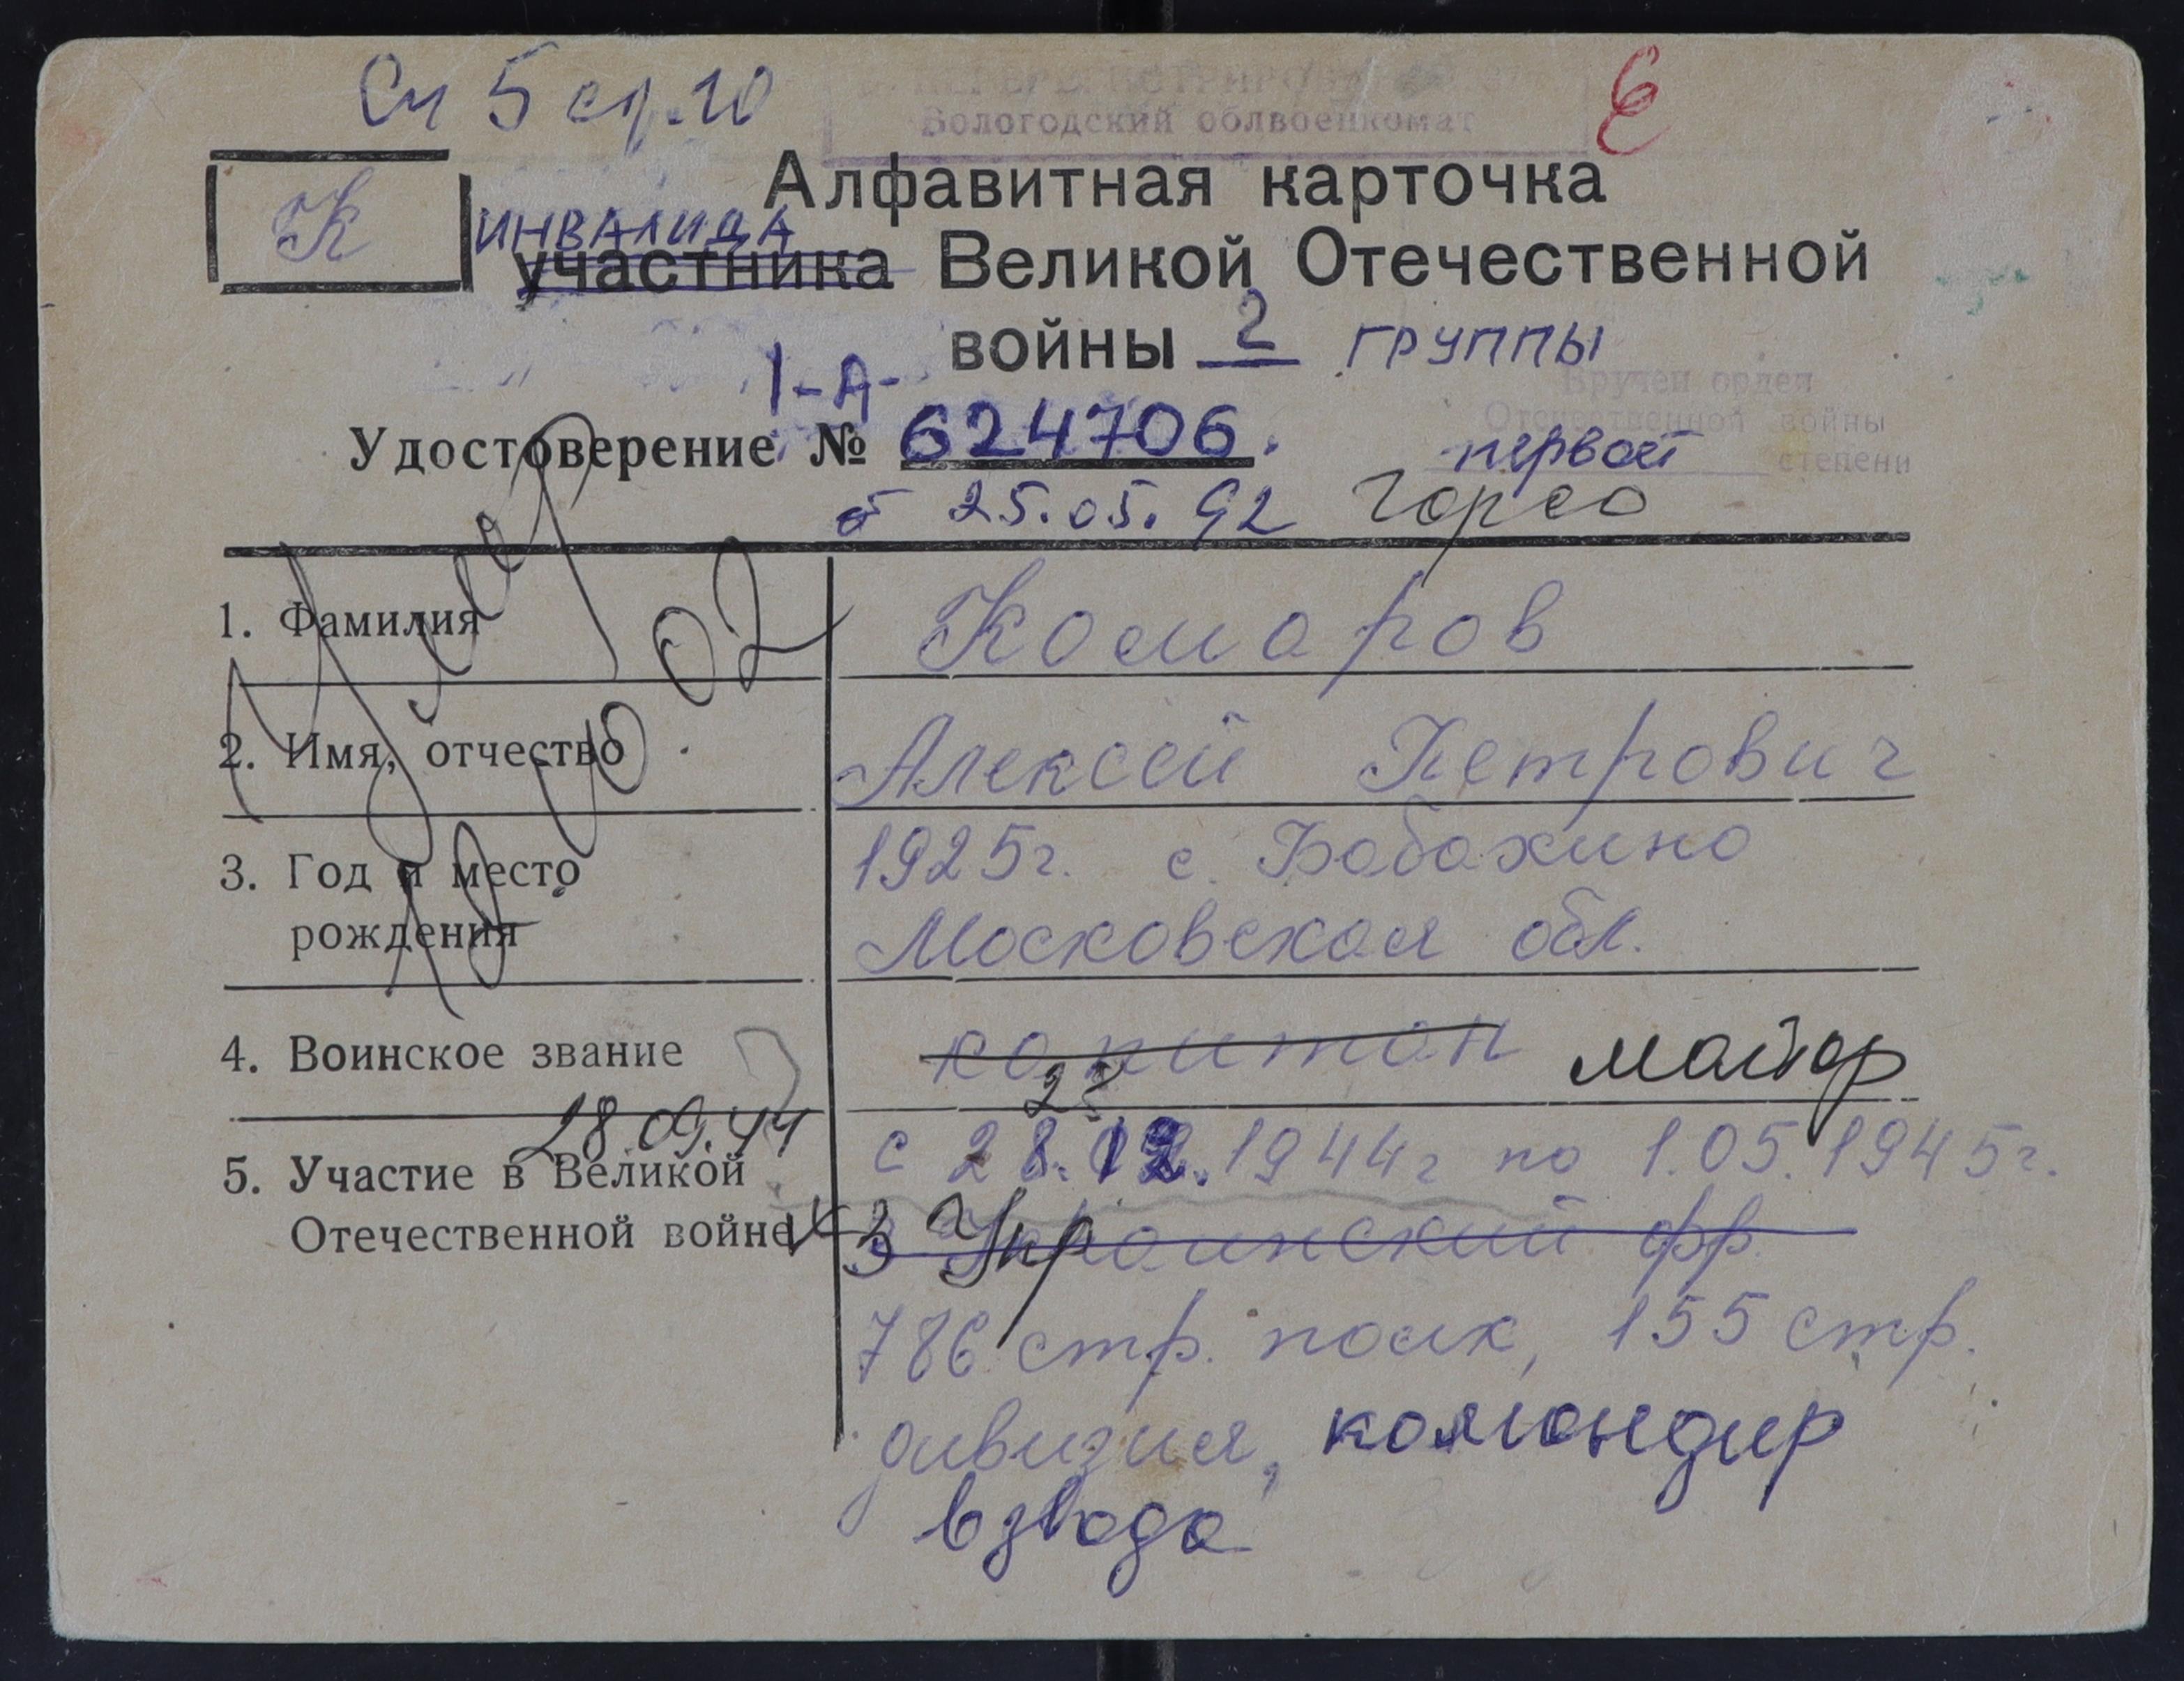 См 5 ср. 10
Вологодский облвоенкомат
К
Алфавитная карточка
ИНВАЛИДА
участника Великой Отечественной
войны 2 ГРУППЫ
Вручен орден
1-А-
Отечественной войны
Удостоверение № 624706.
первой степени
от 25.05.92 Горсо
Умер
02
1. Фамилия Комаров
2. Имя, отчество Алексей Петрович
3. Год и место рождения 1925г. с. Бабахино
Московская обл.
4. Воинское звание капитан майор
28.09.44
5. Участие в Великой Отечественной войне с 28.12.1944г по 1.05.1945г.
3 Украинский фр.
786 стр. полк, 155 стр.
дивизия, командир
взвода